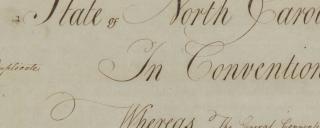 State of North Caro
uplicate.
In Convention
Whereas The General Convention